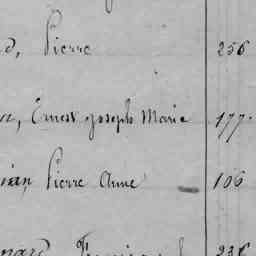 d, Pierre 256
n, Ernest Joseph Marie 177.
ian, Pierre Anne 106
nard, 236